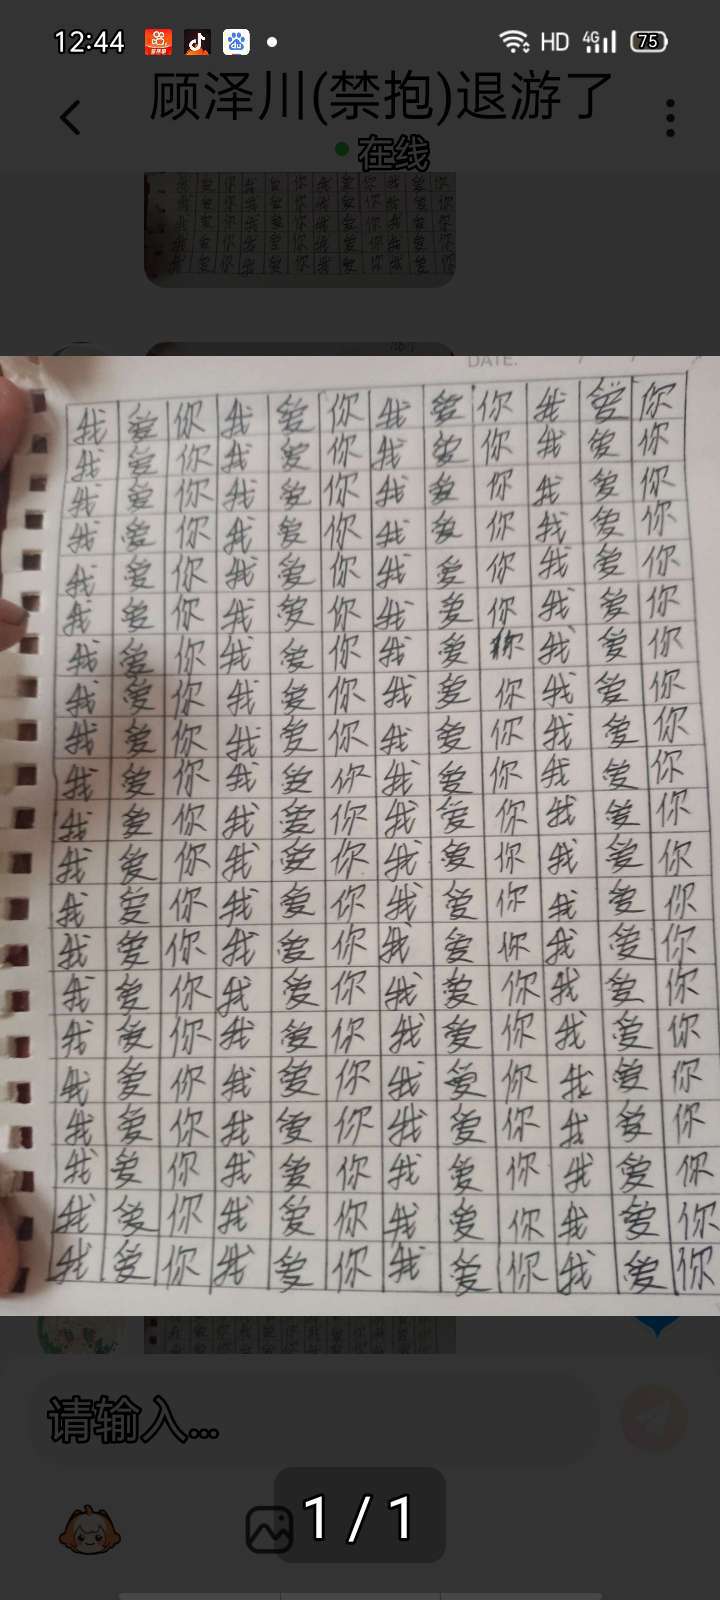 12:44 HD 4G 75
顾泽川(禁抱)退游了
在线
DATE:
我爱你我爱你我爱你我爱你
我爱你我爱你我爱你我爱你
我爱你我爱你我爱你我爱你
我爱你我爱你我爱你我爱你
我爱你我爱你我爱你我爱你
我爱你我爱你我爱你我爱你
我爱你我爱你我爱你我爱你
我爱你我爱你我爱你我爱你
我爱你我爱你我爱你我爱你
我爱你我爱你我爱你我爱你
我爱你我爱你我爱你我爱你
我爱你我爱你我爱你我爱你
我爱你我爱你我爱你我爱你
我爱你我爱你我爱你我爱你
我爱你我爱你我爱你我爱你
我爱你我爱你我爱你我爱你
我爱你我爱你我爱你我爱你
我爱你我爱你我爱你我爱你
我爱你我爱你我爱你我爱你
我爱你我爱你我爱你我爱你
我爱你我爱你我爱你我爱你
请输入...
1 / 1